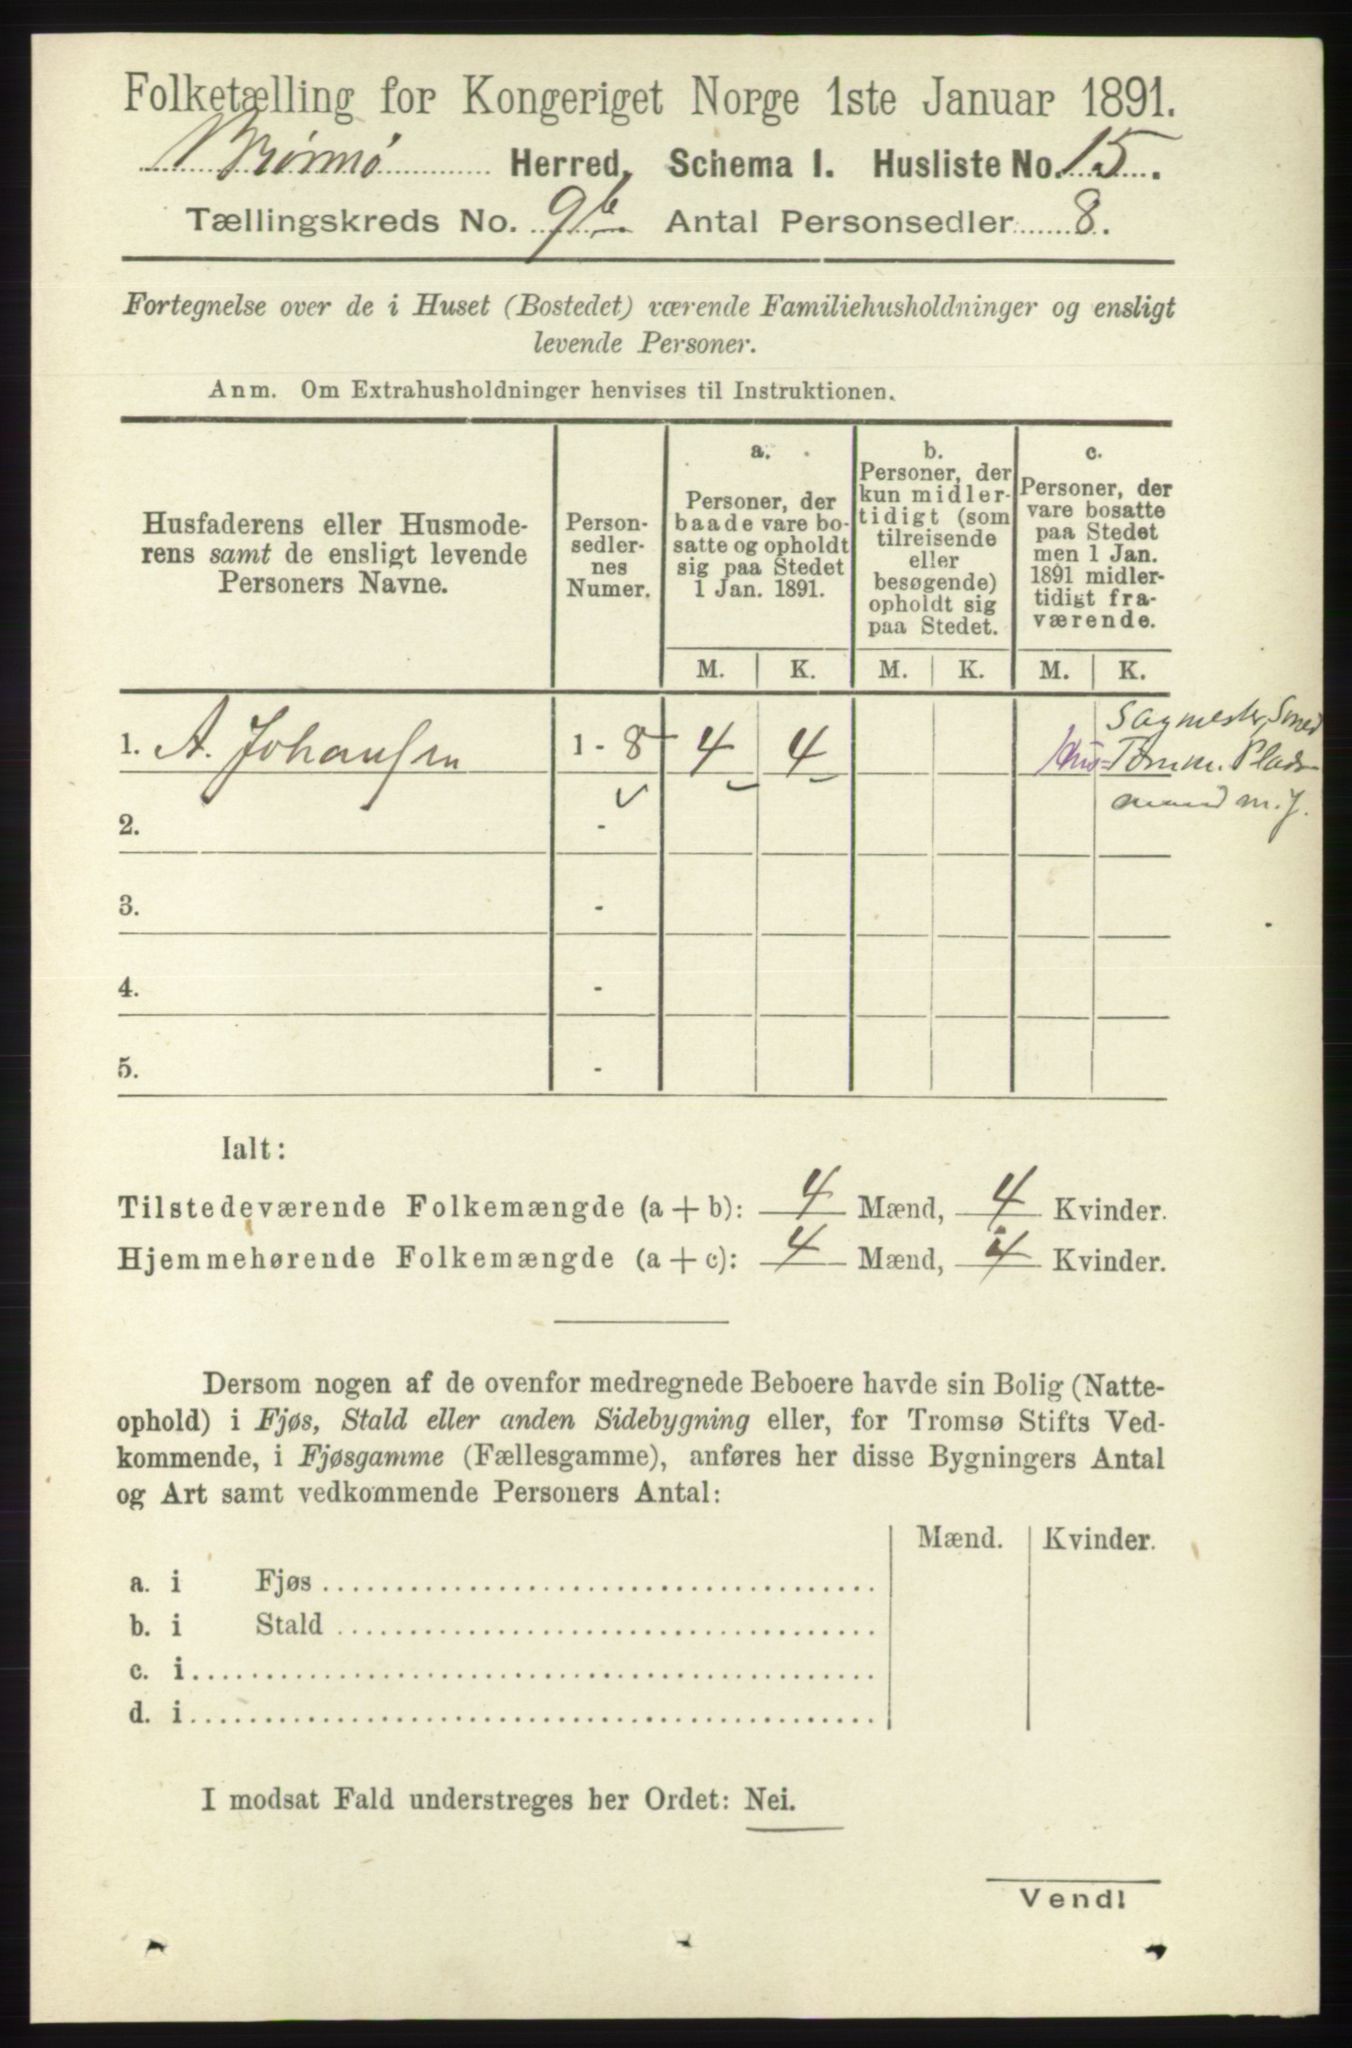 Folketælling for Kongeriget Norge 1ste Januar 1891.
Brønnø Herred. Schema I. Husliste No. 15.
Tællingskreds No. 9b Antal Personsedler 8.
Fortegnelse over de i Huset (Bostedet) værende Familiehusholdninger og ensligt
levende Personer.
Anm. Om Extrahusholdninger henvises til Instruktionen.
Husfaderens eller Husmode-
rens samt de ensligt levende
Personers Navne.
Person-
sedler-
nes
Numer.
a.
Personer, der
baade vare bo-
satte og opholdt
sig paa Stedet
1 Jan. 1891.
b.
Personer, der
kun midler-
tidigt (som
tilreisende
eller
besøgende)
opholdt sig
paa Stedet.
c.
Personer, der
vare bosatte
paa Stedet
men 1 Jan.
1891 midler-
tidigt fra-
værende.
M. K. M. K. M. K.
Sagmester, Smed
1. A. Johansen 1 - 8 4 4 Hus= Tømm. Plads-
mand m. J.
2. -
3. -
4. -
5. -
Ialt:
Tilstedeværende Folkemængde (a + b): 4 Mænd, 4 Kvinder.
Hjemmehørende Folkemængde (a + c): 4 Mænd, 4 Kvinder.
Dersom nogen af de ovenfor medregnede Beboere havde sin Bolig (Natte-
ophold) i Fjøs, Stald eller anden Sidebygning eller, for Tromsø Stifts Ved-
kommende, i Fjøsgamme (Fællesgamme), anføres her disse Bygningers Antal
og Art samt vedkommende Personers Antal:
Mænd. Kvinder.
a. i Fjøs
b. i Stald
c. i
d. i
I modsat Fald understreges her Ordet: Nei.
Vend!